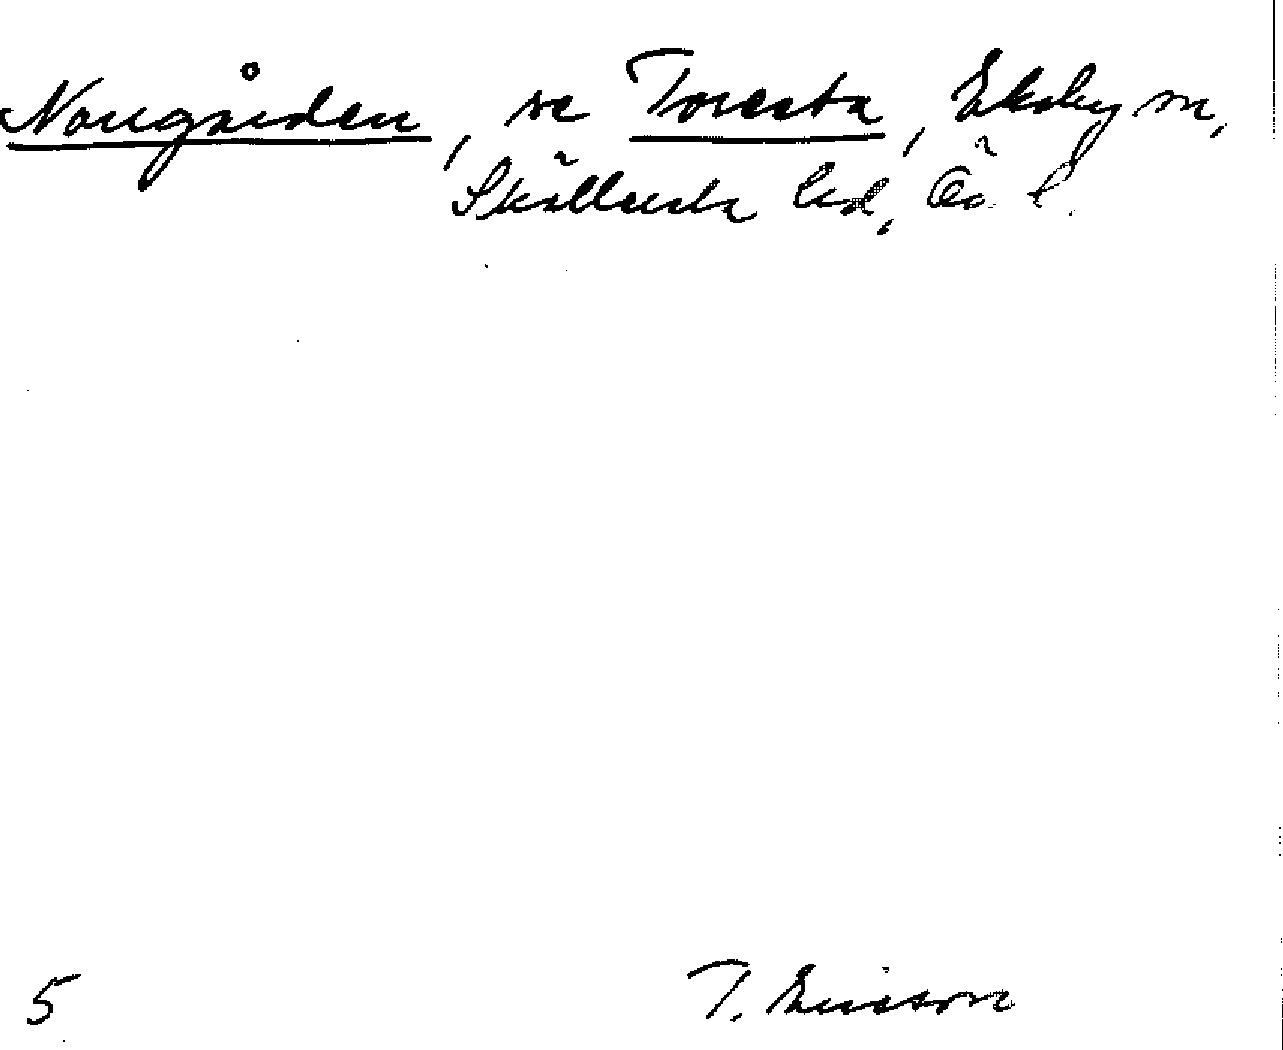 Norrgården, se Toresta, Ekeby sn,
Skyllersta hd, Öä l.
5
T. Ericsson